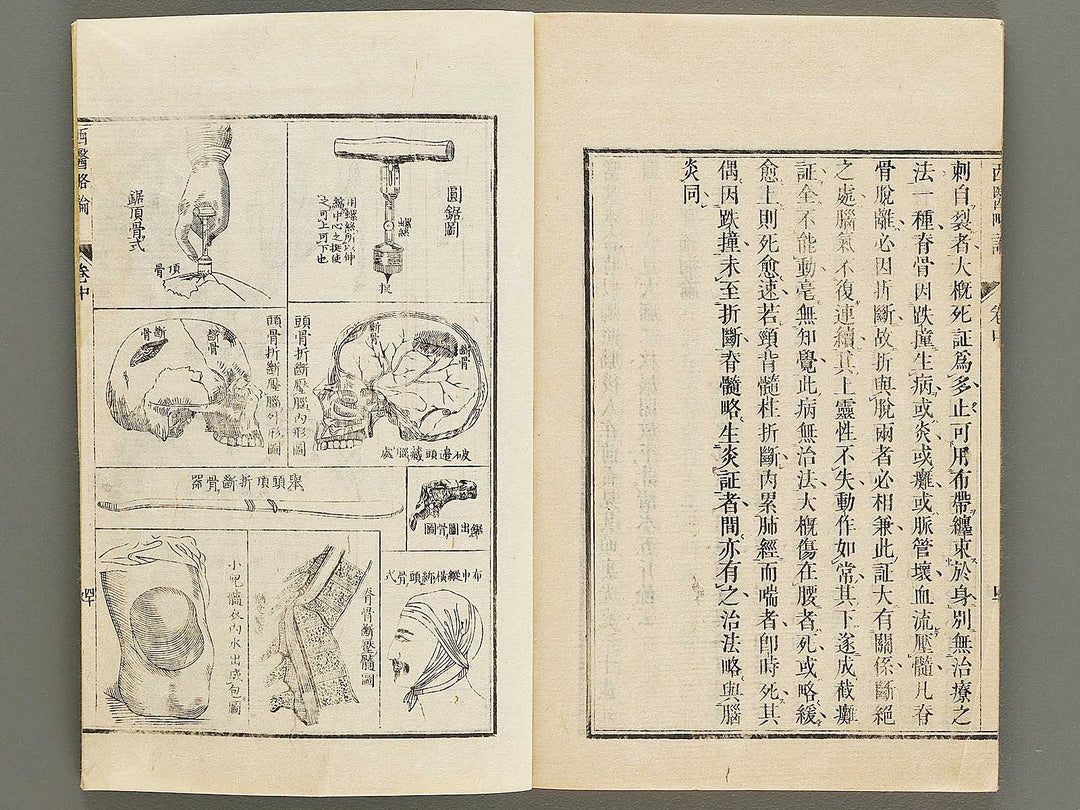 刺自裂者大概死証為多止可用布帶纏束於身別無治療之
法一種脊骨因跌撞生病或炎或癱或脈管壞血流壓髓凡脊
骨脫離必因折斷故折與脫兩者必相兼此証大有關係斷絕
之處腦氣不復連續其上靈性不失動作如常其下遂成截癱
証全不能動毫無知覺此病無治法大概傷在腰者死或略緩
愈上則死愈速若頸背髓柱折斷內累肺經而喘者即時死其
偶因跌撞未至折斷脊髓略生炎証者間亦有之治法略與腦
炎同
圓鋸圖
螺絲
用螺絲所以伸
縮中心之挺使
之可上可下也
挺
鋸頂骨式
頂骨
西醫略論
卷中
頭骨折斷壓腦內形圖
斷骨
斷骨
破邊頭藏腦處
頭骨折斷壓腦外形圖
斷骨
斷骨
舉頭頂折斷骨器
鋸出圖骨圖
布巾縱橫綁頭骨式
脊骨斷壓髓圖
小兒髓衣內水出成包圖